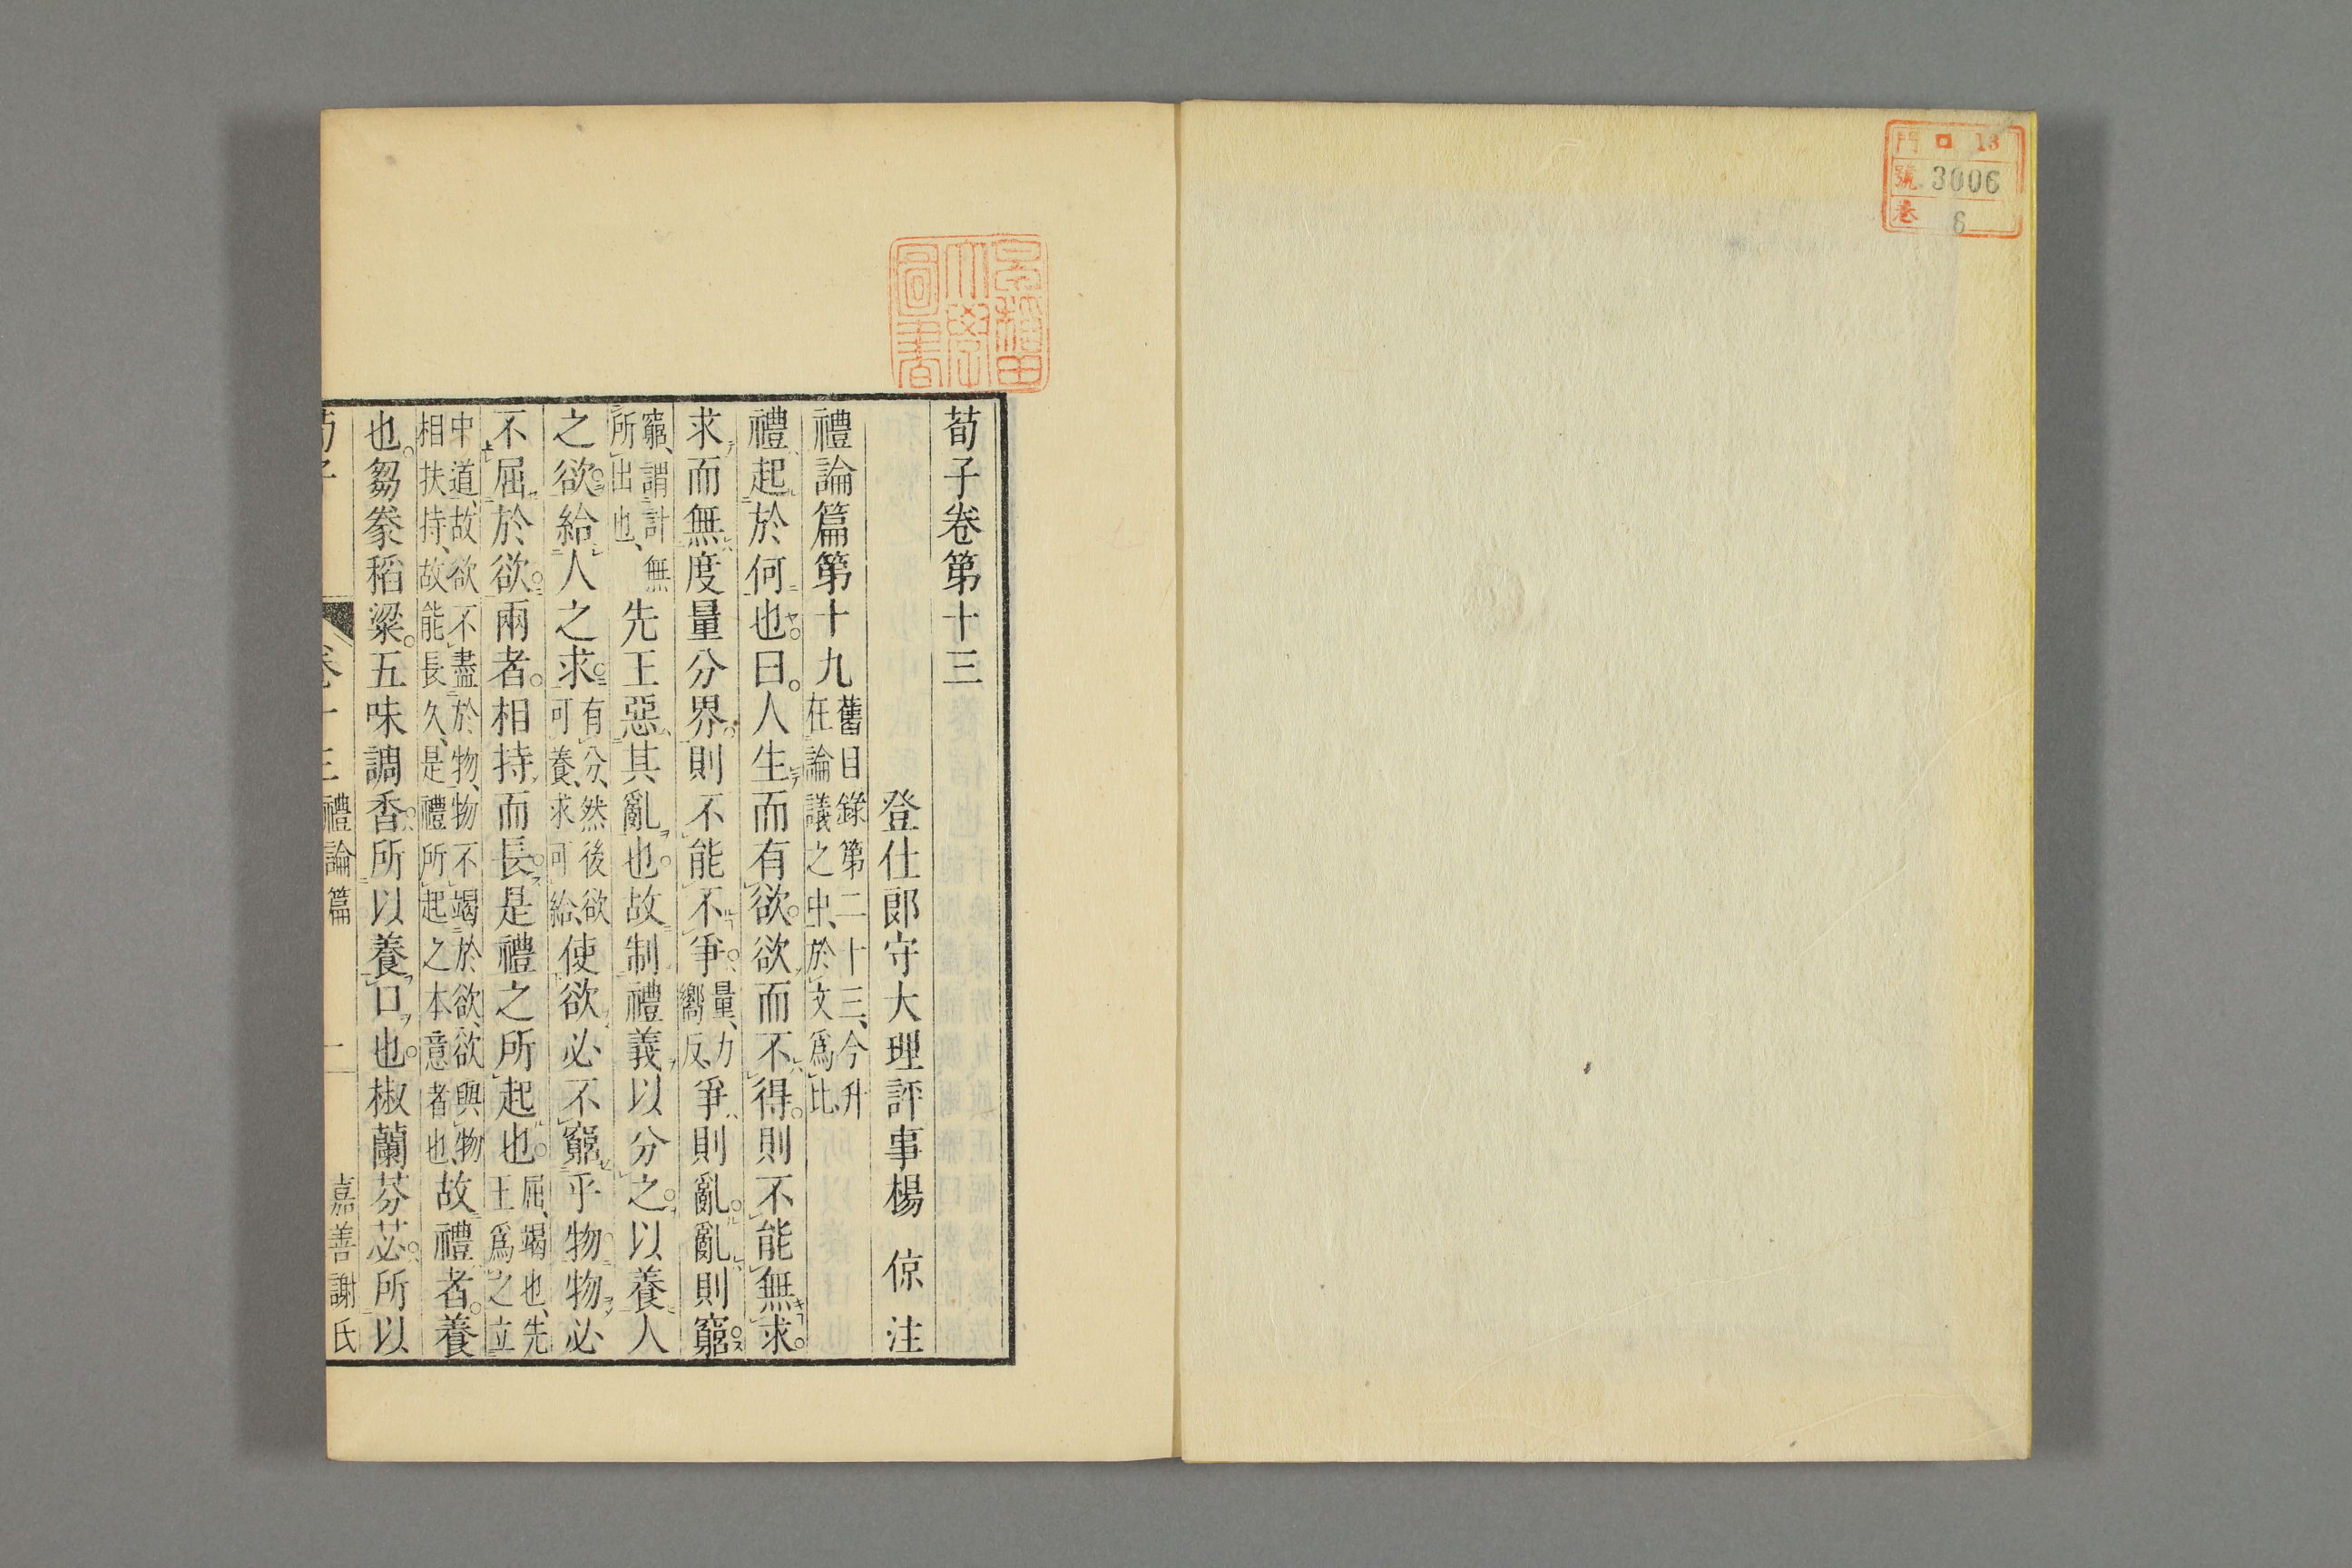 門 ロ 13
號 3006
巻 6
早稲田大學圖書
荀子卷第十三
登仕郎守大理評事楊 倞 注
禮論篇第十九 舊目錄第二十三、今升在論議之中、於文爲比、
禮起於何也。曰。人生而有欲。欲而不得。則不能無求。
求而無度量分界。則不能不爭。量、力嚮反、爭則亂。亂則窮。
窮、謂計無所出也、先王惡其亂也。故制禮義以分之。以養人
之欲。給人之求。有分、然後欲可養、求可給、使欲必不窮乎物。物必
不屈於欲。兩者。相持而長。是禮之所起也。屈、竭也、先王爲之立
中道、故欲不盡於物、物不竭於欲、欲與物相扶持、故能長久、是禮所起之本意者也、故禮者。養
也。芻豢稻粱。五味調香。所以養口也。椒蘭芬苾。所以
荀子 卷十三 禮論篇 一 嘉善謝氏